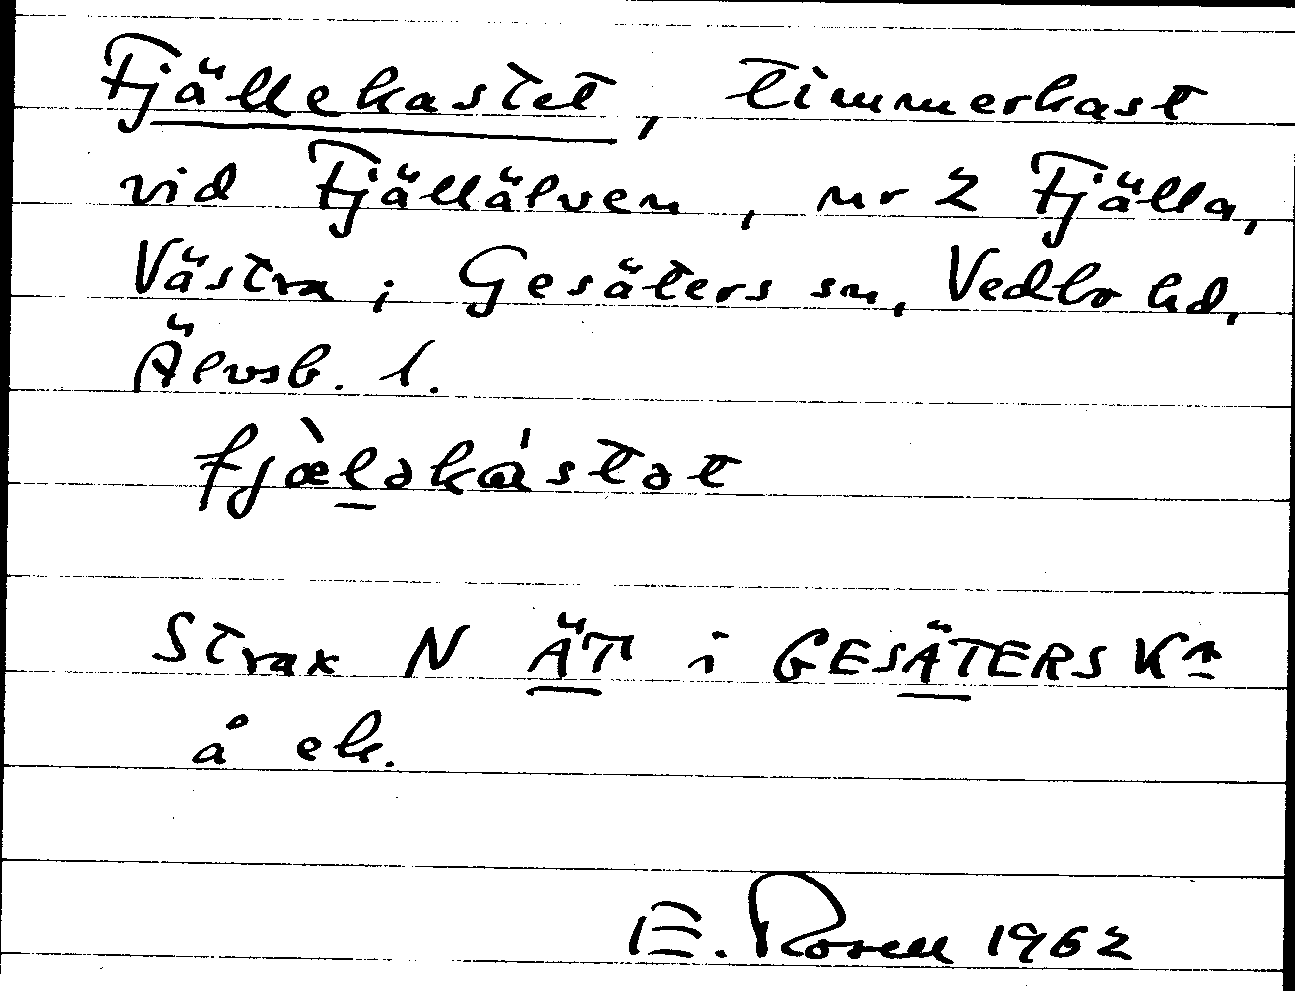 Fjällekastet, timmerkast
vid Fjällälven, nr 2 Fjälla,
Västra; Gesäters sn, Vedbo hd,
Älvsb. l.
fjæ̀l̠əkástət
Strax N ÄT i GESÄTERS K:a
å ek.
E. Rosell 1962